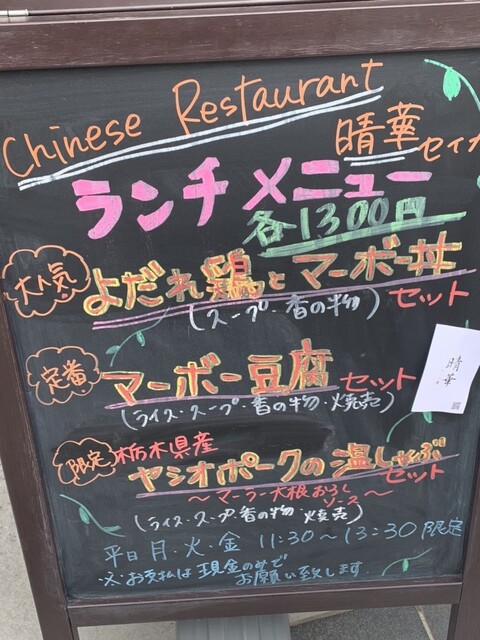 Chinese Restaurant
晴華 セイカ
ランチメニュー
各1300円
大人気! よだれ鶏とマーボー丼
セット
(スープ・香の物)
定番 マーボー豆腐セット
(ライス・スープ・香の物・焼売)
晴華
限定 栃木県産
ヤシオポークの温しゃぶ
セット
～マーラー大根おろし
ソース～
(ライス・スープ・香の物・焼売)
平日 月・火・金 11:30～13:30限定
※お支払は現金のみで
お願い致します